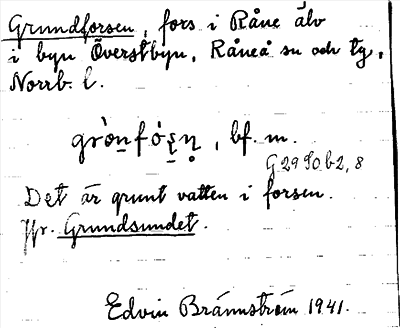 Grundforsen, fors i Råne älv
i byn Överstbyn, Råneå sn och tg,
Norrb. l.
bf. m.
Det är grunt vatten i forsen.
Jfr. Grundsundet.
Edvin Brännström 1941.